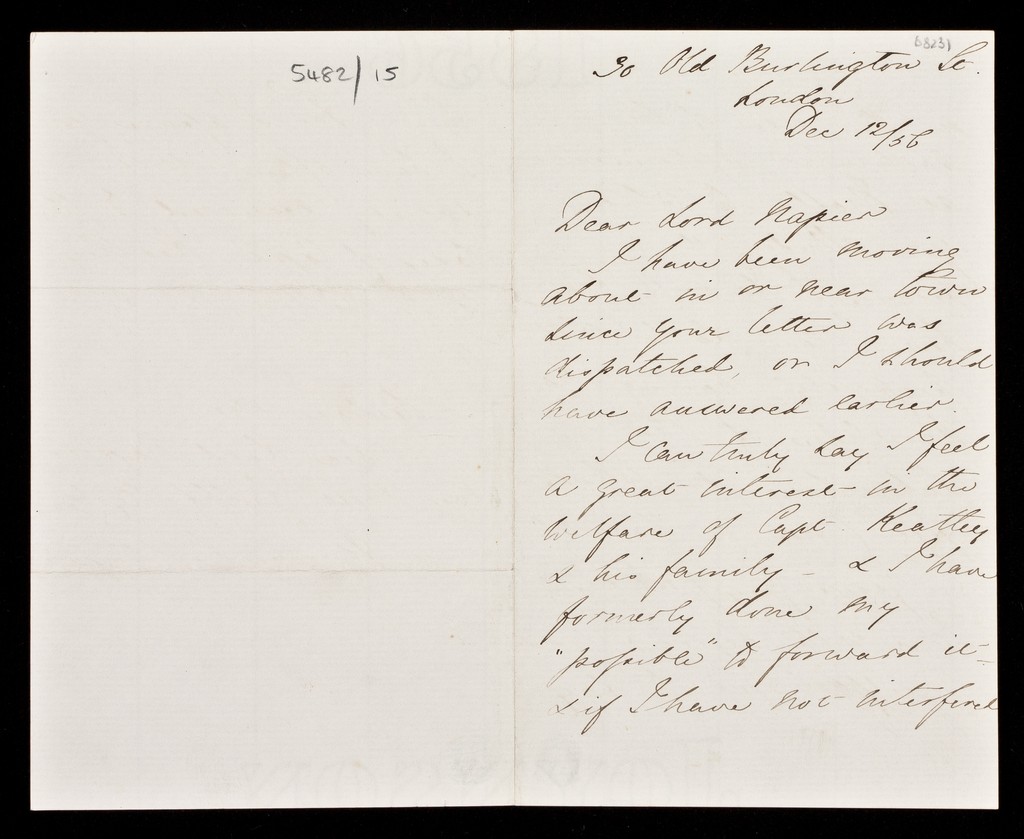 5482/15
68231
30 Old Burlington St.
London
Dec 12/56
Dear Lord Napier
I have been moving
about in or near town
since your letter was
dispatched, or I should
have answered earlier.
I can truly say I feel
a great interest in the
welfare of Capt. Keatley
& his family - & I have
formerly done my
"possible" to forward it -
& if I have not interfered